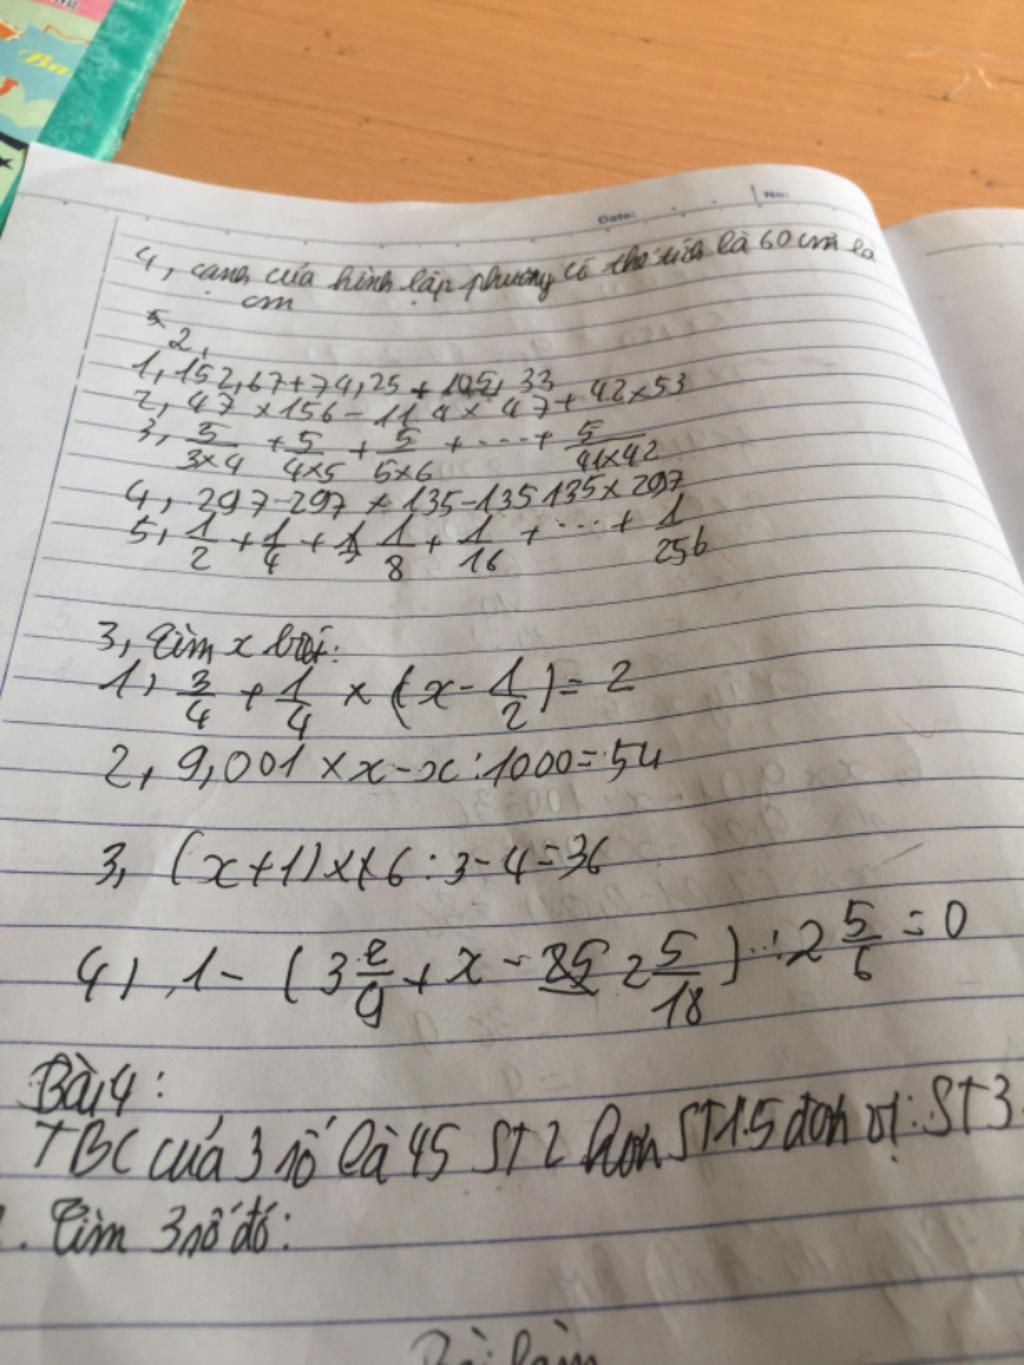 Ba
Date:
No:
4, cạnh của hình lập phương có thể tích là 60 cm là
cm
2,
1, 152,67 + 74,25 + 105,33
2, 47 x 156 - 114 x 47 + 42 x 53
3, 5/3x4 + 5/4x5 + 5/5x6 + ... + 5/41x42
4, 297 297 x 135 - 135 135 x 297
5, 1/2 + 1/4 + 1/8 + 1/16 + ... + 1/256
3, Tìm x
1, 3/4 + 1/4 x (x - 1/2) = 2
2, 9,001 x x - x : 1000 = 54
3, (x + 1) x 6 : 3 - 4 = 36
4, 1 - (3 2/9 + x - 2 5/18) : 2 5/6 = 0
Bài 4:
TBC của 3 số là 45 ST2 hơn ST1 5 đơn vị: ST3
. Tìm 3 số đó:
Bài làm